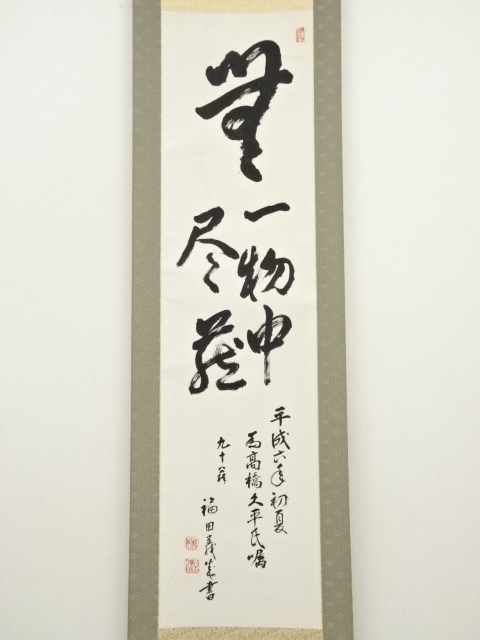 無
一物中
尽蔵
平成六年初夏
為高橋久平氏嘱
九十翁
福田義成書